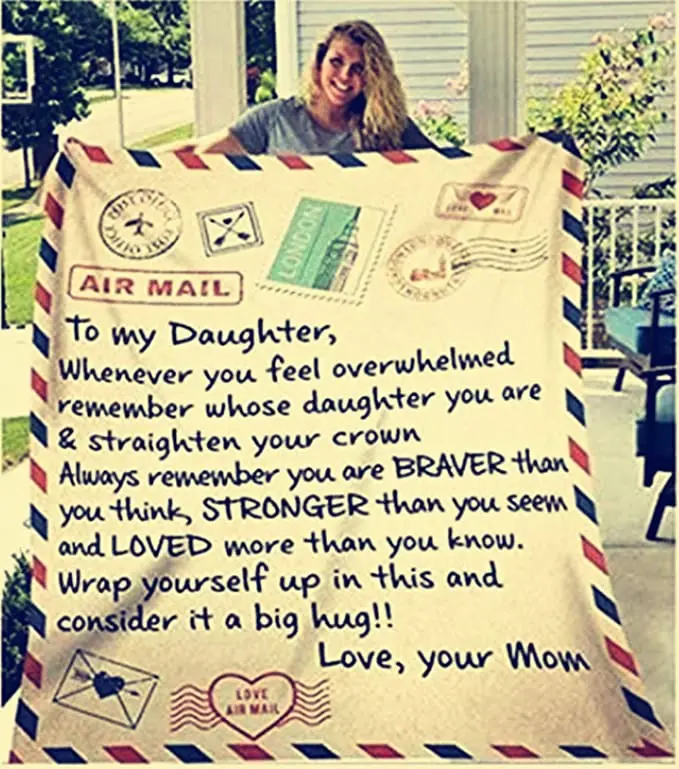 LONDON
LOVE MAIL
AIR MAIL
To my Daughter,
Whenever you feel overwhelmed
remember whose daughter you are
& straighten your crown
Always remember you are BRAVER than
you think, STRONGER than you seem
and LOVED more than you know.
Wrap yourself up in this and
consider it a big hug!!
Love, your Mom
LOVE
AIR MAIL